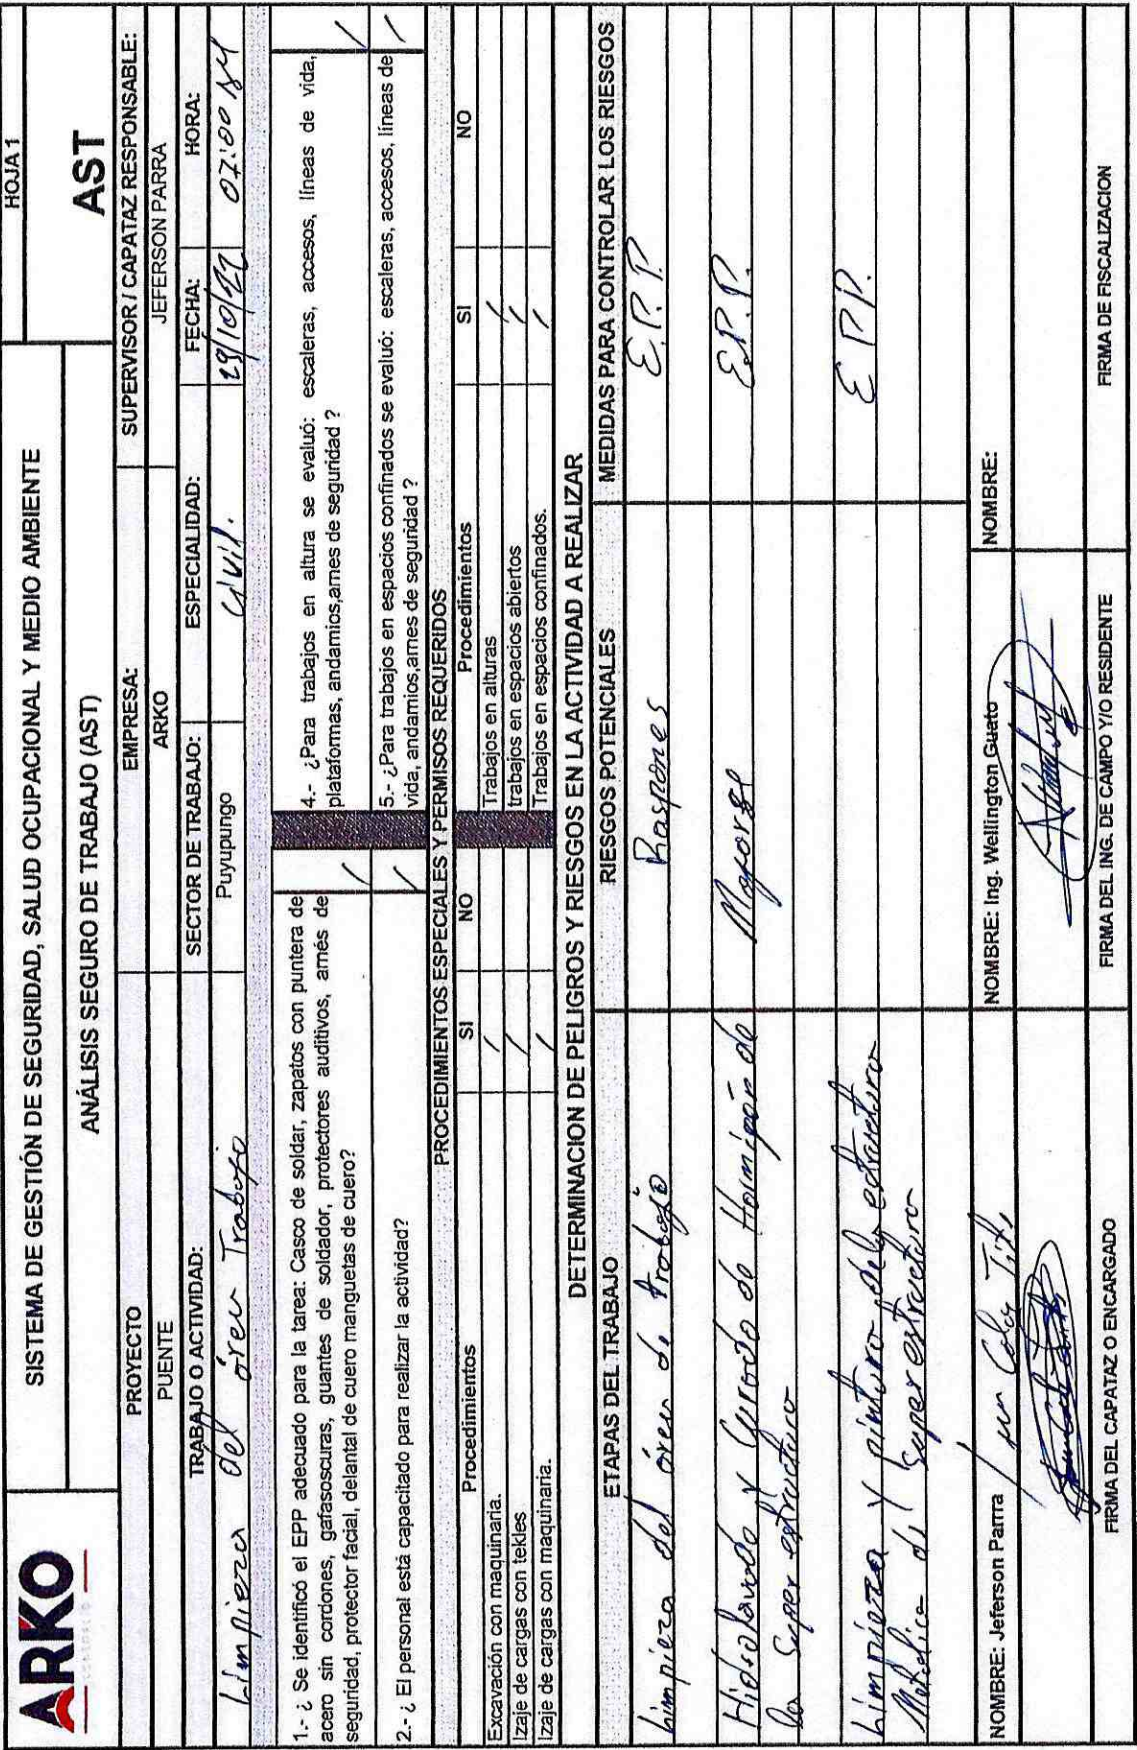 ARKO
SISTEMA DE GESTIÓN DE SEGURIDAD, SALUD OCUPACIONAL Y MEDIO AMBIENTE
HOJA 1
ANÁLISIS SEGURO DE TRABAJO (AST)
AST
PROYECTO
EMPRESA:
SUPERVISOR / CAPATAZ RESPONSABLE:
PUENTE
ARKO
JEFERSON PARRA
TRABAJO O ACTIVIDAD:
SECTOR DE TRABAJO:
ESPECIALIDAD:
FECHA:
HORA:
Limpieza del área Trabajo
Puyupungo
Civil.
07:00
1.- ¿ Se identificó el EPP adecuado para la tarea: Casco de soldar, zapatos con puntera de
acero sin cordones, gafasoscuras, guantes de soldador, protectores auditivos, arnés de
seguridad, protector facial, delantal de cuero manguetas de cuero?
/
4.- ¿Para trabajos en altura se evaluó: escaleras, accesos, líneas de vida,
plataformas, andamios,arnes de seguridad ?
/
2.- ¿ El personal está capacitado para realizar la actividad?
/
5.- ¿Para trabajos en espacios confinados se evaluó: escaleras, accesos, líneas de
vida, andamios,arnes de seguridad ?
/
PROCEDIMIENTOS ESPECIALES Y PERMISOS REQUERIDOS
Procedimientos
SI
NO
Procedimientos
SI
NO
Excavación con maquinaria.
/
Trabajos en alturas
/
Izaje de cargas con tekles
/
trabajos en espacios abiertos
/
Izaje de cargas con maquinaria.
/
Trabajos en espacios confinados.
/
DETERMINACION DE PELIGROS Y RIESGOS EN LA ACTIVIDAD A REALIZAR
ETAPAS DEL TRABAJO
RIESGOS POTENCIALES
MEDIDAS PARA CONTROLAR LOS RIESGOS
Limpieza del área de trabajo
Raspones
E.P.P.
Hidrolavado y Curado de Hormigón de
la Super estructura
E.P.P.
Limpieza y pintura de la estructura
Metalica de Super estructura
E P P.
NOMBRE: Jeferson Parrra
NOMBRE: Ing. Wellington Guato
NOMBRE:
FIRMA DEL CAPATAZ O ENCARGADO
FIRMA DEL ING. DE CAMPO Y/O RESIDENTE
FIRMA DE FISCALIZACION